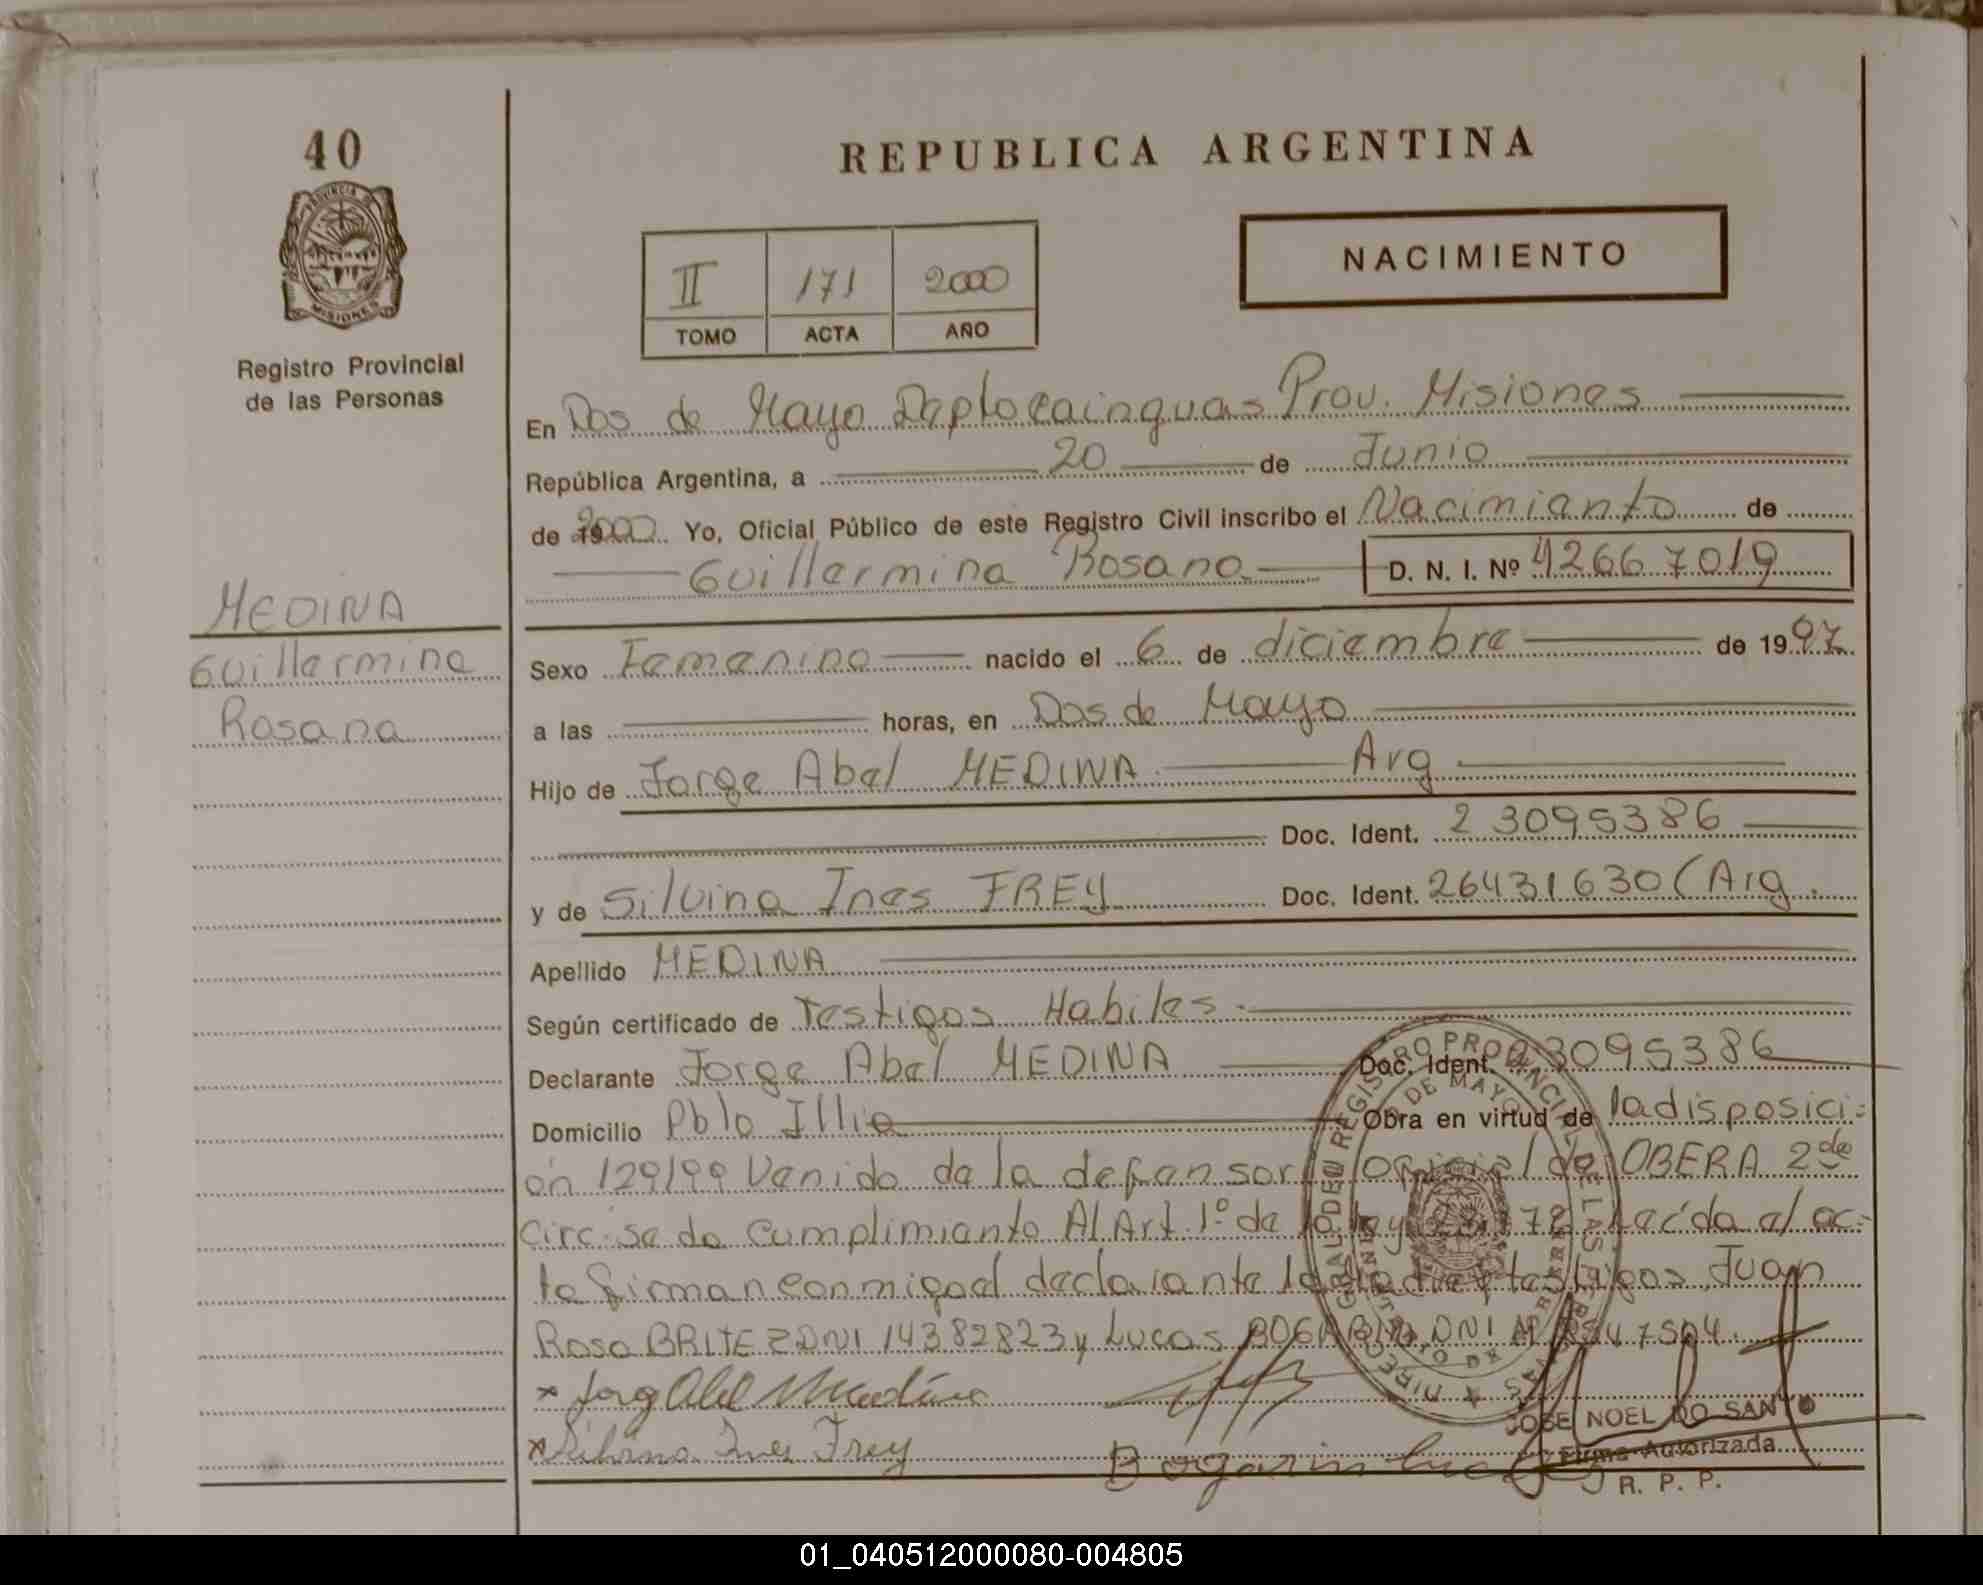 40
PROVINCIA DE
MISIONES
Registro Provincial
de las Personas
MEDINA
Guillermina
Rosana
REPUBLICA ARGENTINA
II 171 2000
TOMO ACTA AÑO
NACIMIENTO
En Dos de Mayo Depto Cainguas Prov. Misiones
República Argentina, a 20 de Junio
de 2000 Yo, Oficial Público de este Registro Civil inscribo el Nacimiento de
Guillermina Rosana D. N. I. Nº 42667019
Sexo Femenino nacido el 6 de diciembre de 1997
a las horas, en Dos de Mayo
Hijo de Jorge Abel MEDINA Arg
Doc. Ident. 23095386
y de Silvina Ines FREY Doc. Ident. 26431630 (Arg.
Apellido MEDINA
Según certificado de Testigos Habiles
Declarante Jorge Abel MEDINA Doc. Ident. 23095386
Domicilio Pblo Illia Obra en virtud de la disposici-
ón 129/99 Venido de la defensor Oficial de OBERA 2da
Circ. se da cumplimiento Al Art. 1º de leída al ac-
to firman conmigo el declarante la madre y testigos Juan
Rosa BRITEZ DNI 14382823 y Lucas BOGARIN DNI
Jorge Abel Medina
Silvina Ines Frey
Bogarin Lucas
JOSE NOEL DO SANTO
Firma Autorizada
R. P. P.
01_040512000080-004805